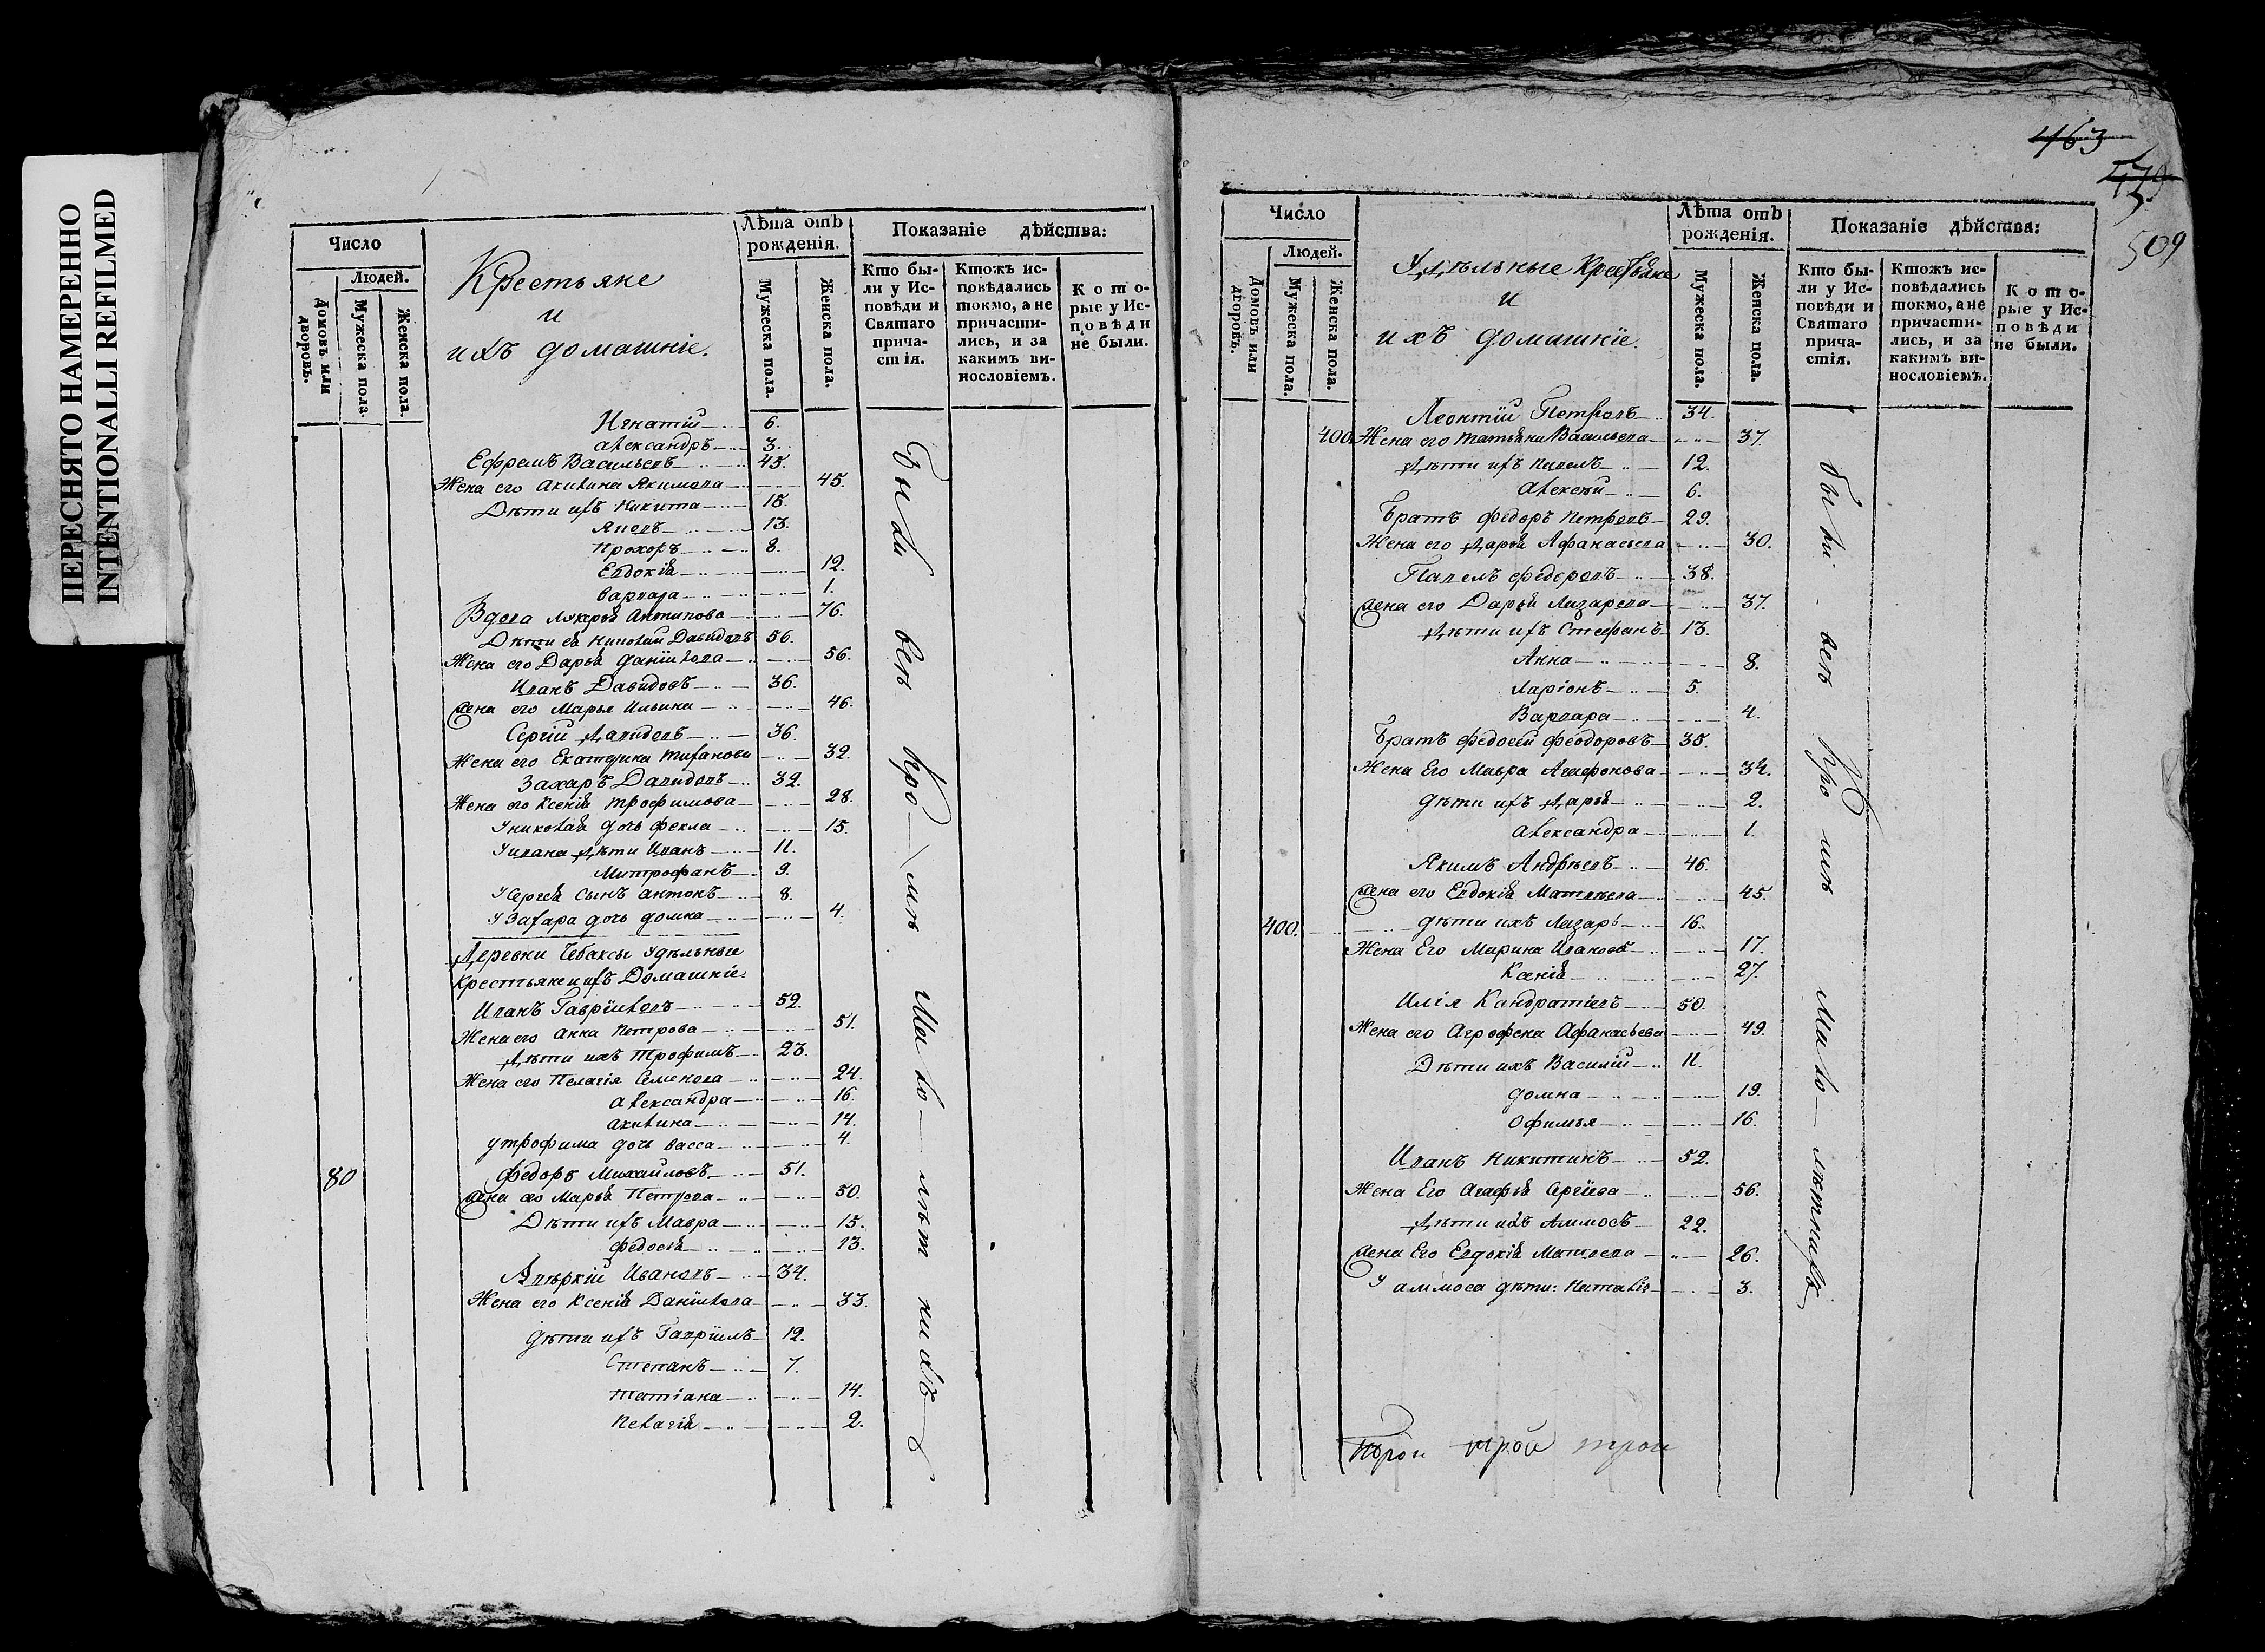 ПЕРЕСНЯТО НАМЕРЕННО
INTENTIONALLI REFILMED
Число
Людей.
Домовъ или дворовъ.
Мужеска пола.
Женска пола.
Крестьяне
и
ихъ домашніе.
Лѣта отъ рожденія.
Мужеска пола.
Женска пола.
Показаніе дѣйства:
Кто были у Исповѣди и Святаго причастія.
Ктожъ исповѣдались токмо, а не причастились, и за какимъ винословіемъ.
Которые у Исповѣди не были.
Игнатій 6.
Александръ 3.
Ефремъ Васильевъ 45.
Жена его Акилина Якимова 45.
Дѣти ихъ Никита 15.
Яковъ 13.
Прохоръ 8.
Евдокія 12.
Варвара 1.
Вдова Лукерья Антипова 76.
Дѣти ея Николай Давидовъ 56.
Жена его Дарья Даніилова 56.
Иванъ Давидовъ 36.
Жена его Марья Ильина 46.
Сергій Давидовъ 36.
Жена его Екатерина 32.
Захаръ Давидовъ 32.
Жена его Ксенія Трофимова 28.
У Николая дочь Фекла 15.
У Ивана дѣти Иванъ 11.
Митрофанъ 9.
У Сергея сынъ Антонъ 8.
У Захара дочь Домна 4.
Деревни Чебаксы Удѣльные
Крестьяне и ихъ Домашніе.
Иванъ Гавріиловъ 52.
Жена его Анна Петрова 51.
Дѣти ихъ Трофимъ 23.
Жена его Пелагія Семенова 24.
Александра 16.
Акилина 14.
У Трофима дочь Васса 4.
80
Федоръ Михайловъ 51.
Жена его Марья Петрова 50.
Дѣти ихъ Мавра 15.
Федосія 13.
Авѣркій Ивановъ 34.
Жена его Ксенія Даніилова 33.
Дѣти ихъ Гавріилъ 12.
Степанъ 7.
Татіана 14.
Пелагія 2.
Были всѣ кромѣ малолѣтнихъ
463
509
Число
Людей.
Домовъ или дворовъ.
Мужеска пола.
Женска пола.
Удѣльные Крестьяне
и
ихъ домашніе.
Лѣта отъ рожденія.
Мужеска пола.
Женска пола.
Показаніе дѣйства:
Кто были у Исповѣди и Святаго причастія.
Ктожъ исповѣдались токмо, а не причастились, и за какимъ винословіемъ.
Которые у Исповѣди не были.
Леонтій Петровъ 34.
400. Жена его Татьяна Васильева 37.
Дѣти ихъ Павелъ 12.
Алексѣй 6.
Братъ Федоръ Петровъ 29.
Жена его Дарья Афанасьева 30.
Павелъ Федоровъ 38.
Жена его Дарья Лазарева 37.
Дѣти ихъ Стефанъ 13.
Анна 8.
Ларіонъ 5.
Варвара 4.
Братъ Федосей Феодоровъ 35.
Жена Его Мавра Агафонова 34.
Дѣти ихъ Дарья 2.
Александра 1.
Якимъ Андрѣевъ 46.
Жена его Евдокія Матвѣева 45.
400. Дѣти ихъ Лазарь 16.
Жена Его Марина Иванова 17.
Ксенія 27.
Илія Кандратіевъ 50.
Жена его Агрофена Афанасьева 49.
Дѣти ихъ Василій 11.
Домна 19.
Офимья 16.
Иванъ Никитинъ 52.
Жена Его Агафья Сергіева 56.
Дѣти ихъ Аммосъ 22.
Жена Его Евдокія Матвеева 26.
У Аммоса дѣти: Наталія 3.
были всѣ кромѣ малолѣтнихъ
трои трои трои